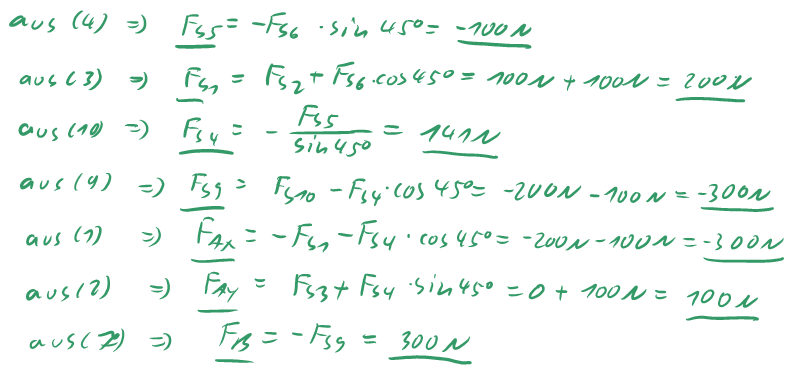 aus (4) => F_S5 = -F_S6 · sin 45° = -100N
aus (3) => F_S1 = F_S2 + F_S6 · cos 45° = 100N + 100N = 200N
aus (10) => F_S4 = - F_S5 / sin 45° = 141N
aus (9) => F_S9 = F_S10 - F_S4 · cos 45° = -200N - 100N = -300N
aus (1) => F_Ax = -F_S1 - F_S4 · cos 45° = -200N - 100N = -300N
aus (2) => F_Ay = F_S3 + F_S4 · sin 45° = 0 + 100N = 100N
aus ( ) => F_B = -F_S9 = 300N